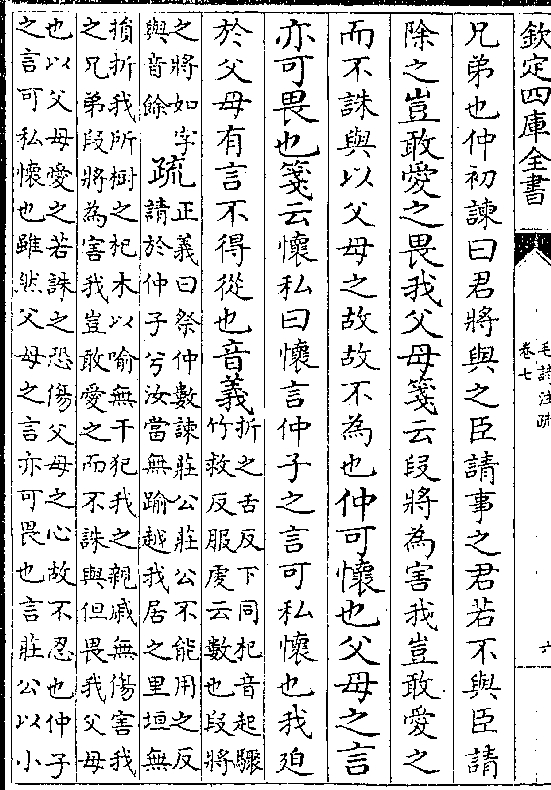 欽定四庫全書
毛詩注疏
卷七
六
兄弟也仲初諫曰君將與之臣請事之君若不與臣請
除之豈敢愛之畏我父母箋云段將為害我豈敢愛之
而不誅與以父母之故故不為也仲可懷也父母之言
亦可畏也箋云懷私曰懷言仲子之言可私懷也我迫
於父母有言不得從也音義折之舌反下同杞音起驟
竹救反服䖍云數也段將
之將如字
與音餘
疏正義曰祭仲數諫莊公莊公不能用之反
請於仲子兮汝當無踰越我居之里垣無
損折我所樹之杞木以喻無干犯我之親戚無傷害我
之兄弟段將為害我豈敢愛之而不誅與但畏我父母
也以父母愛之若誅之恐傷父母之心故不忍也仲子
之言可私懷也雖然父母之言亦可畏也言莊公以小